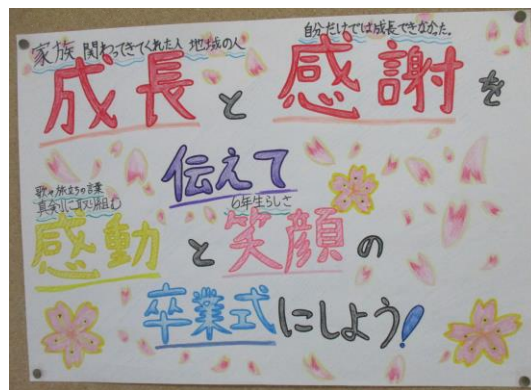 家族 関わってきてくれた人 地域の人
自分だけでは成長できなかった。
成長と感謝を
伝えて
歌や旅立ちの言葉
真剣に取り組む
6年生らしさ
感動と笑顔の
卒業式にしよう!